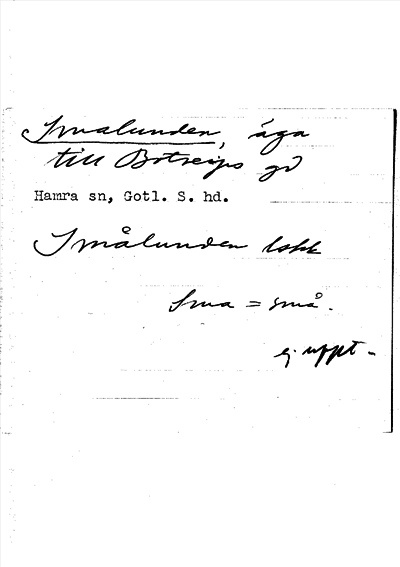 Smalunden, äga
till Botreips gd
Hamra sn, Gotl. S. hd.
Smålunden lskk
Sma = små.
ej uppt -